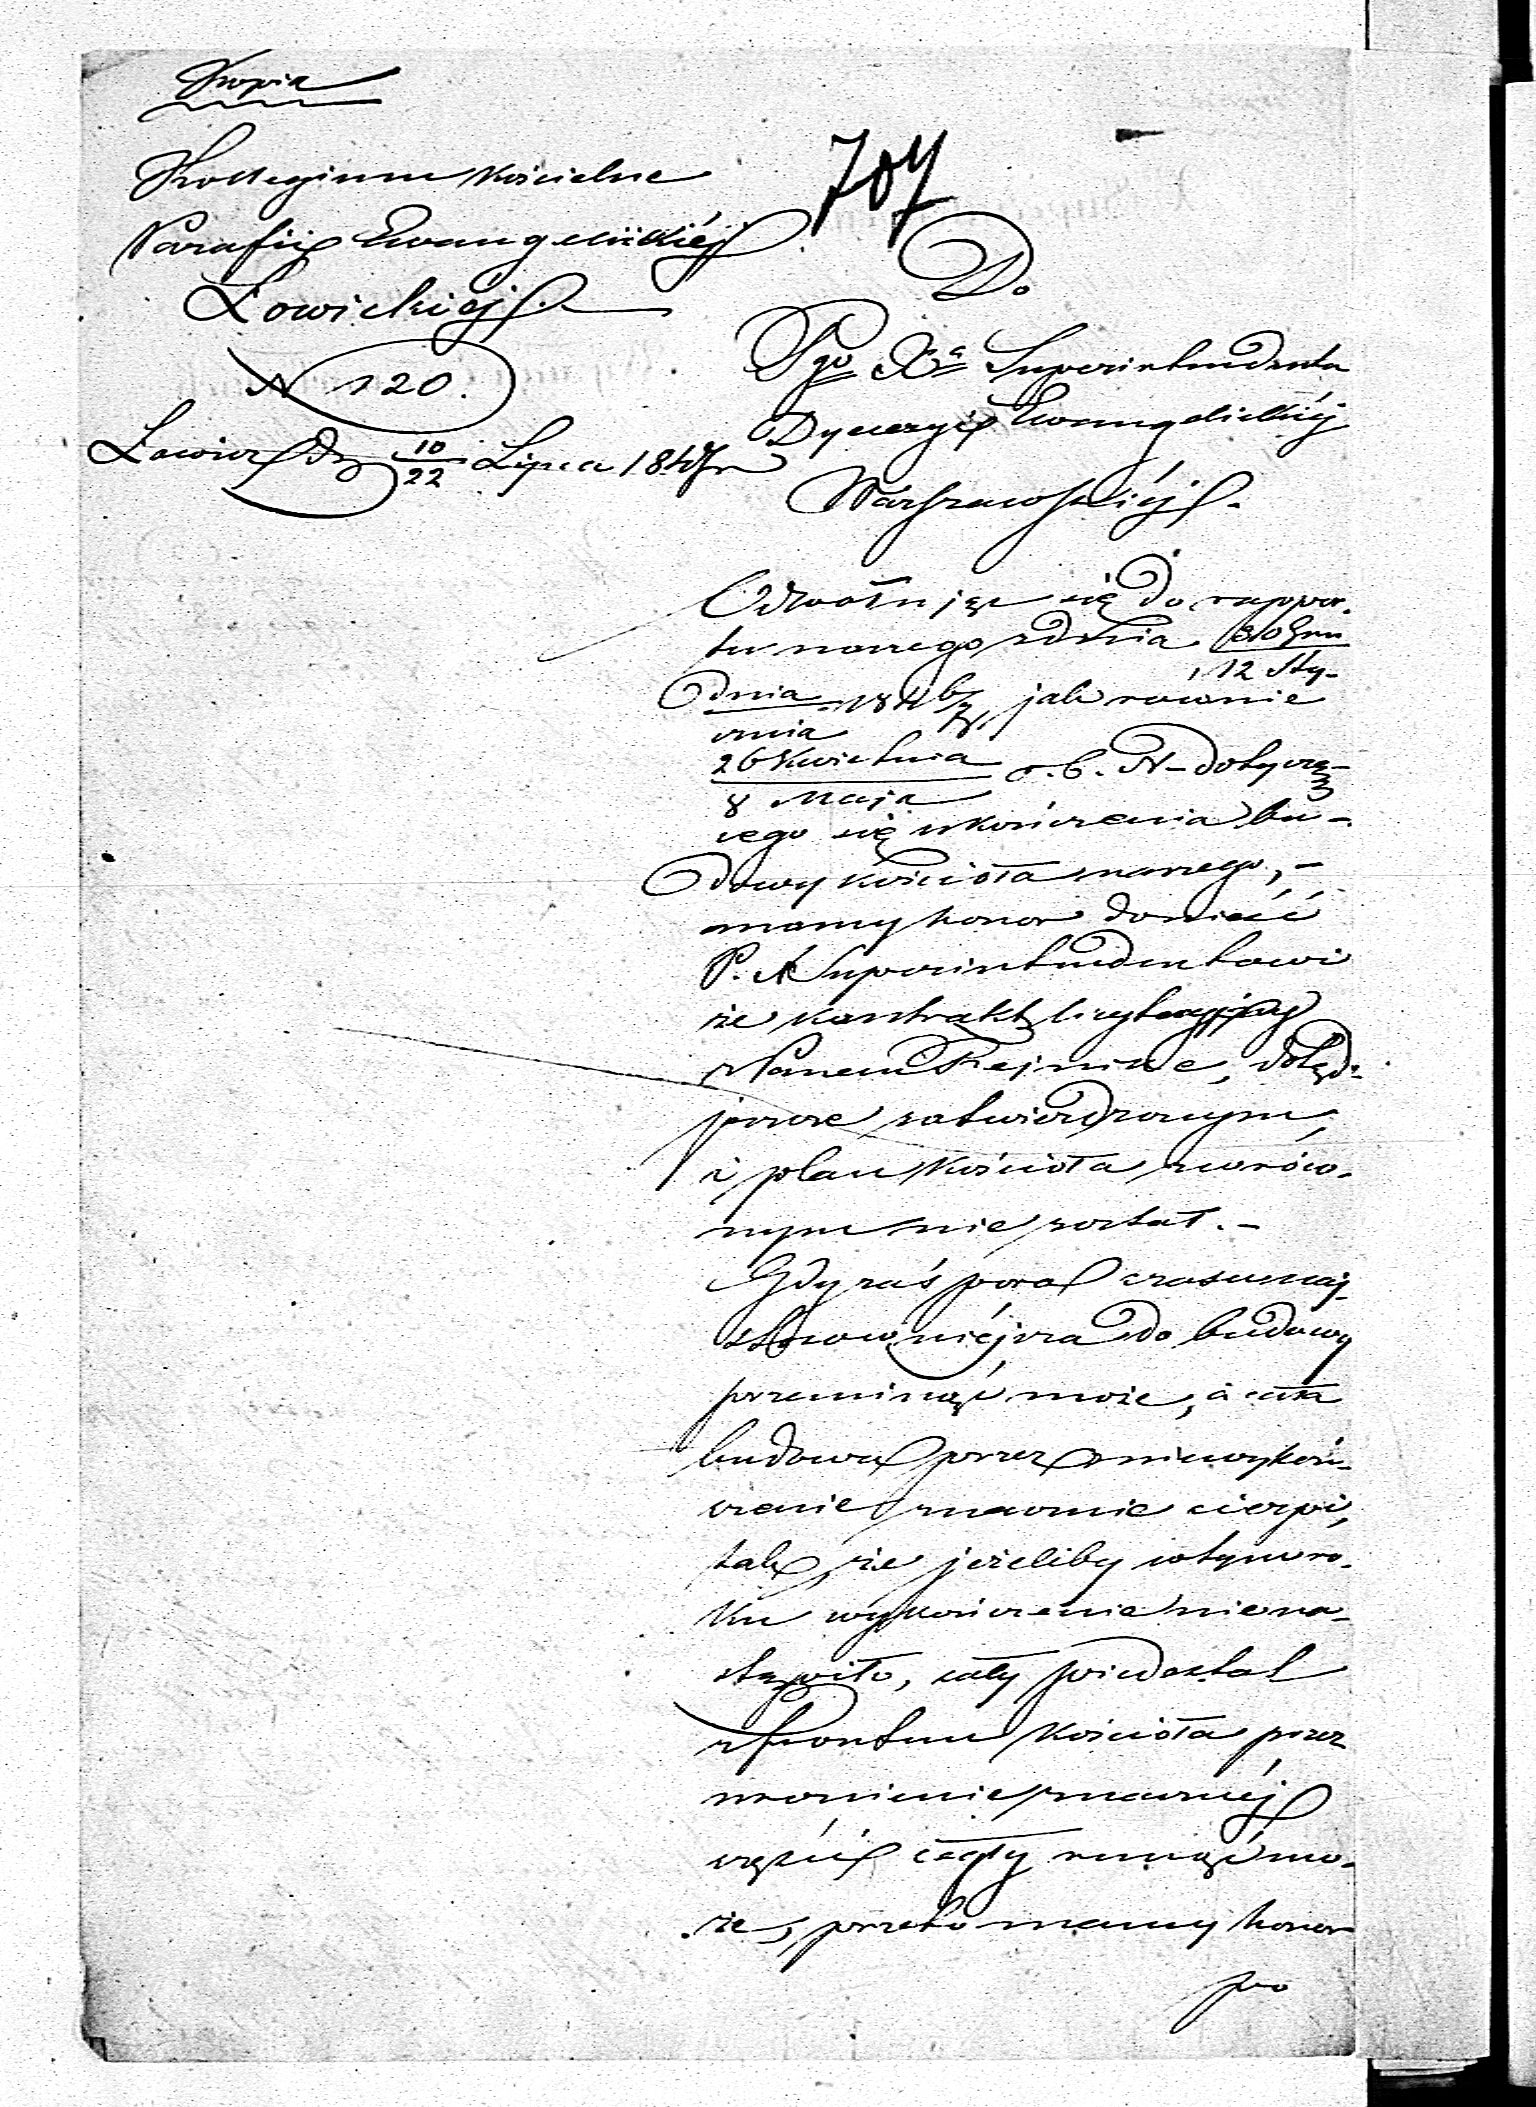 Kopia
Kollegium Kościelne
Parafii Ewangelickiéj
Łowickiej
N 120.
Łowicz d. 10/22 Lipca 1847 r
704
Do
Pgo Xa Superintendenta
Dyecezyi Ewangelickiéj
Warszawskiéj.
Odwołując się do rappor-
tu naszego z dnia 30 Gru
12 Sty-
dnia 1846/7, jak równie
cznia
26 Kwietnia r. b. N – dotyczą-
8 Maja
cego się ukończenia bu-
dowy kościoła naszego, –
mamy honor donieść
P. X Superintendentowi
że kontrakt licytacyjny
z Panem Rejnike, dotąd
jeszcze zatwierdzonym,
i plan Kościoła zwróco-
nym nie został. –
Gdy zaś pora czasu naj-
stosowniéjsza do budowy
przeminąć może, a cała
budowa przez niewykoń-
czenie znacznie cierpi,
tak, że jeżeliby w tym ro-
ku wykończenie nie na-
stąpiło, cały piedestal
z frontu Kościoła przez
znacznéj
części cegły runąć mo-
że, przeto mamy honor
pro